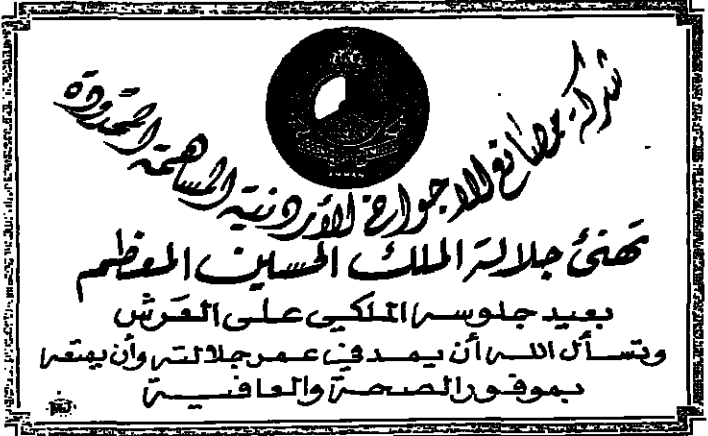 شركة مصانع الاجواخ الأردنية المساهمة المحدودة
تهنئ جلالة الملك الحسين المعظم
بعيد جلوسه الملكي على العرش
وتسأل الله أن يمد في عمر جلالته وأن يمتعه
بموفور الصحة والعافية
AMMAN